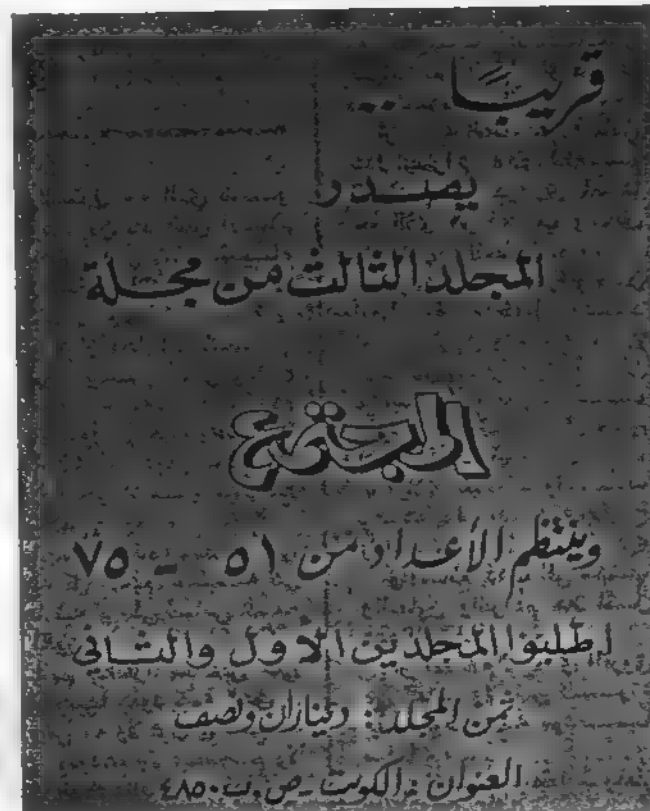 قريبًا ..
يصدر
المجلد الثالث من مجلة
المجتمع
وينتظم الأعداد من ٥١ - ٧٥
اطلبوا المجلدين الأول والثاني
ثمن المجلد : ديناران ونصف
العنوان : الكويت - ص . ب ٤٨٥٠